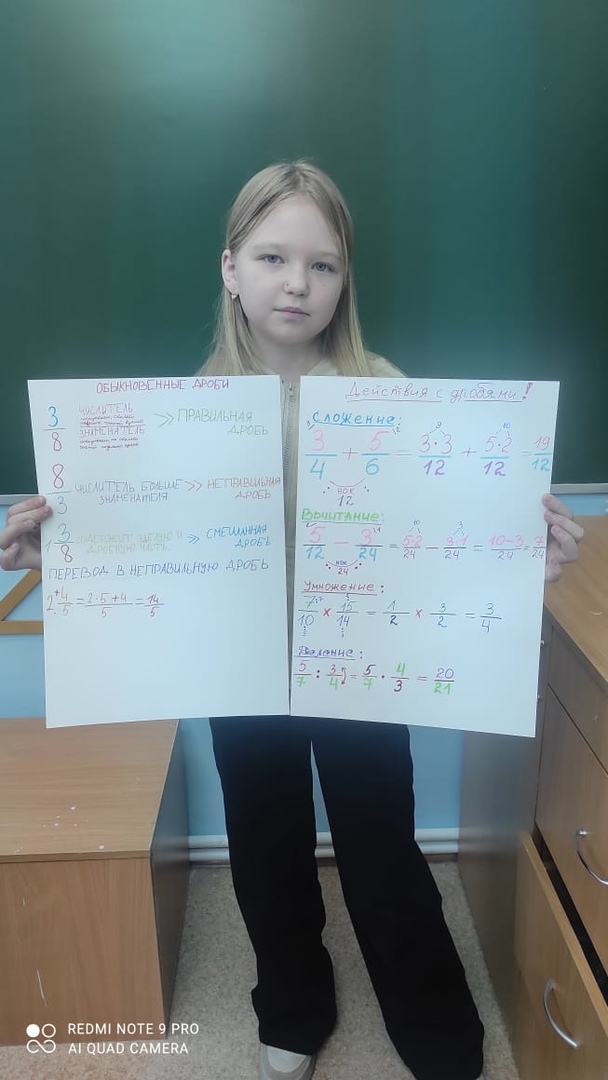 ОБЫКНОВЕННЫЕ ДРОБИ
3/8 ЧИСЛИТЕЛЬ
ЗНАМЕНАТЕЛЬ
>> ПРАВИЛЬНАЯ ДРОБЬ
8/3 ЧИСЛИТЕЛЬ БОЛЬШЕ ЗНАМЕНАТЕЛЯ >> НЕПРАВИЛЬНАЯ ДРОБЬ
1 3/8 СОДЕРЖИТ ЦЕЛУЮ И ДРОБНУЮ ЧАСТЬ >> СМЕШАННАЯ ДРОБЬ
ПЕРЕВОД В НЕПРАВИЛЬНУЮ ДРОБЬ
2 +4/5 = 2·5+4/5 = 14/5
Действия с дробями!
Сложение:
3/4 + 5/6 = 3·3/12 + 5·2/12 = 19/12
9 10
НОК
12
Вычитание:
5/12 − 3/24 = 5·2/24 − 3·1/24 = 10−3/24 = 7/24
10 3
НОК
24
Умножение:
7/10 × 15/14 = 1/2 × 3/2 = 3/4
Деление:
5/7 : 3/4 = 5/7 · 4/3 = 20/21
REDMI NOTE 9 PRO
AI QUAD CAMERA